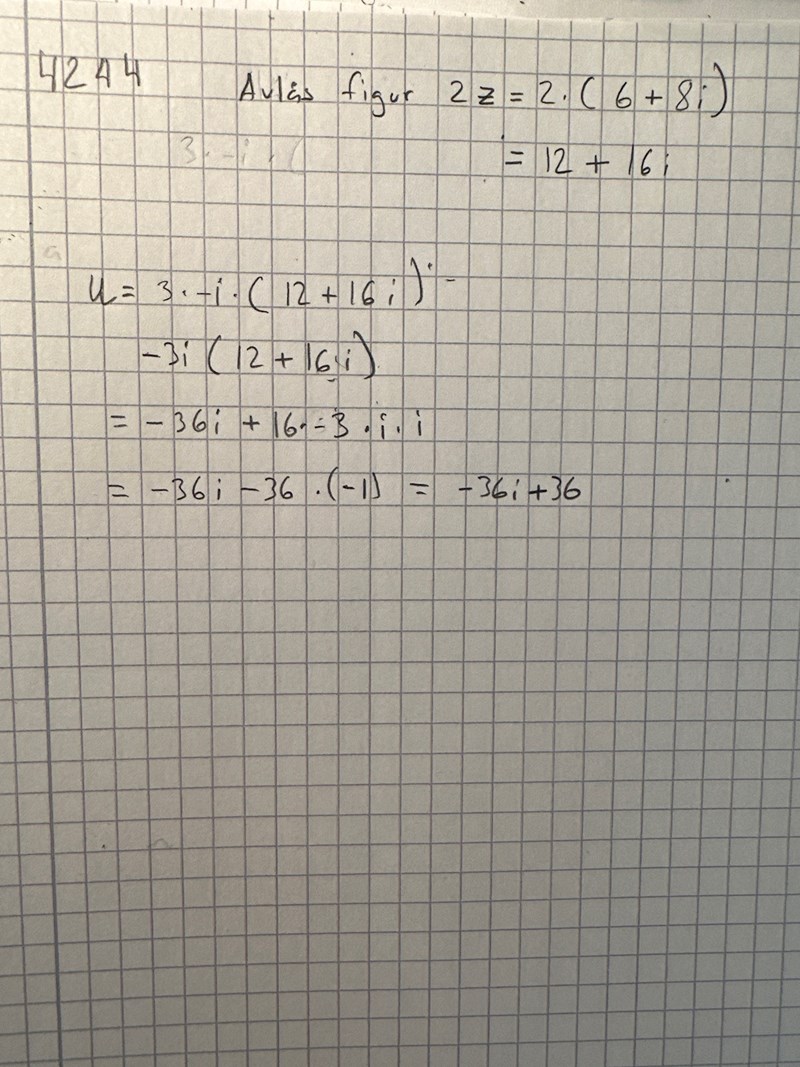 4244 Avläs figur 2z = 2·(6 + 8i)
= 12 + 16i
3·-i·(
u = 3·-i·(12 + 16i) -
-3i(12 + 16i)
= -36i + 16·-3·i·i
= -36i -36·(-1) = -36i+36